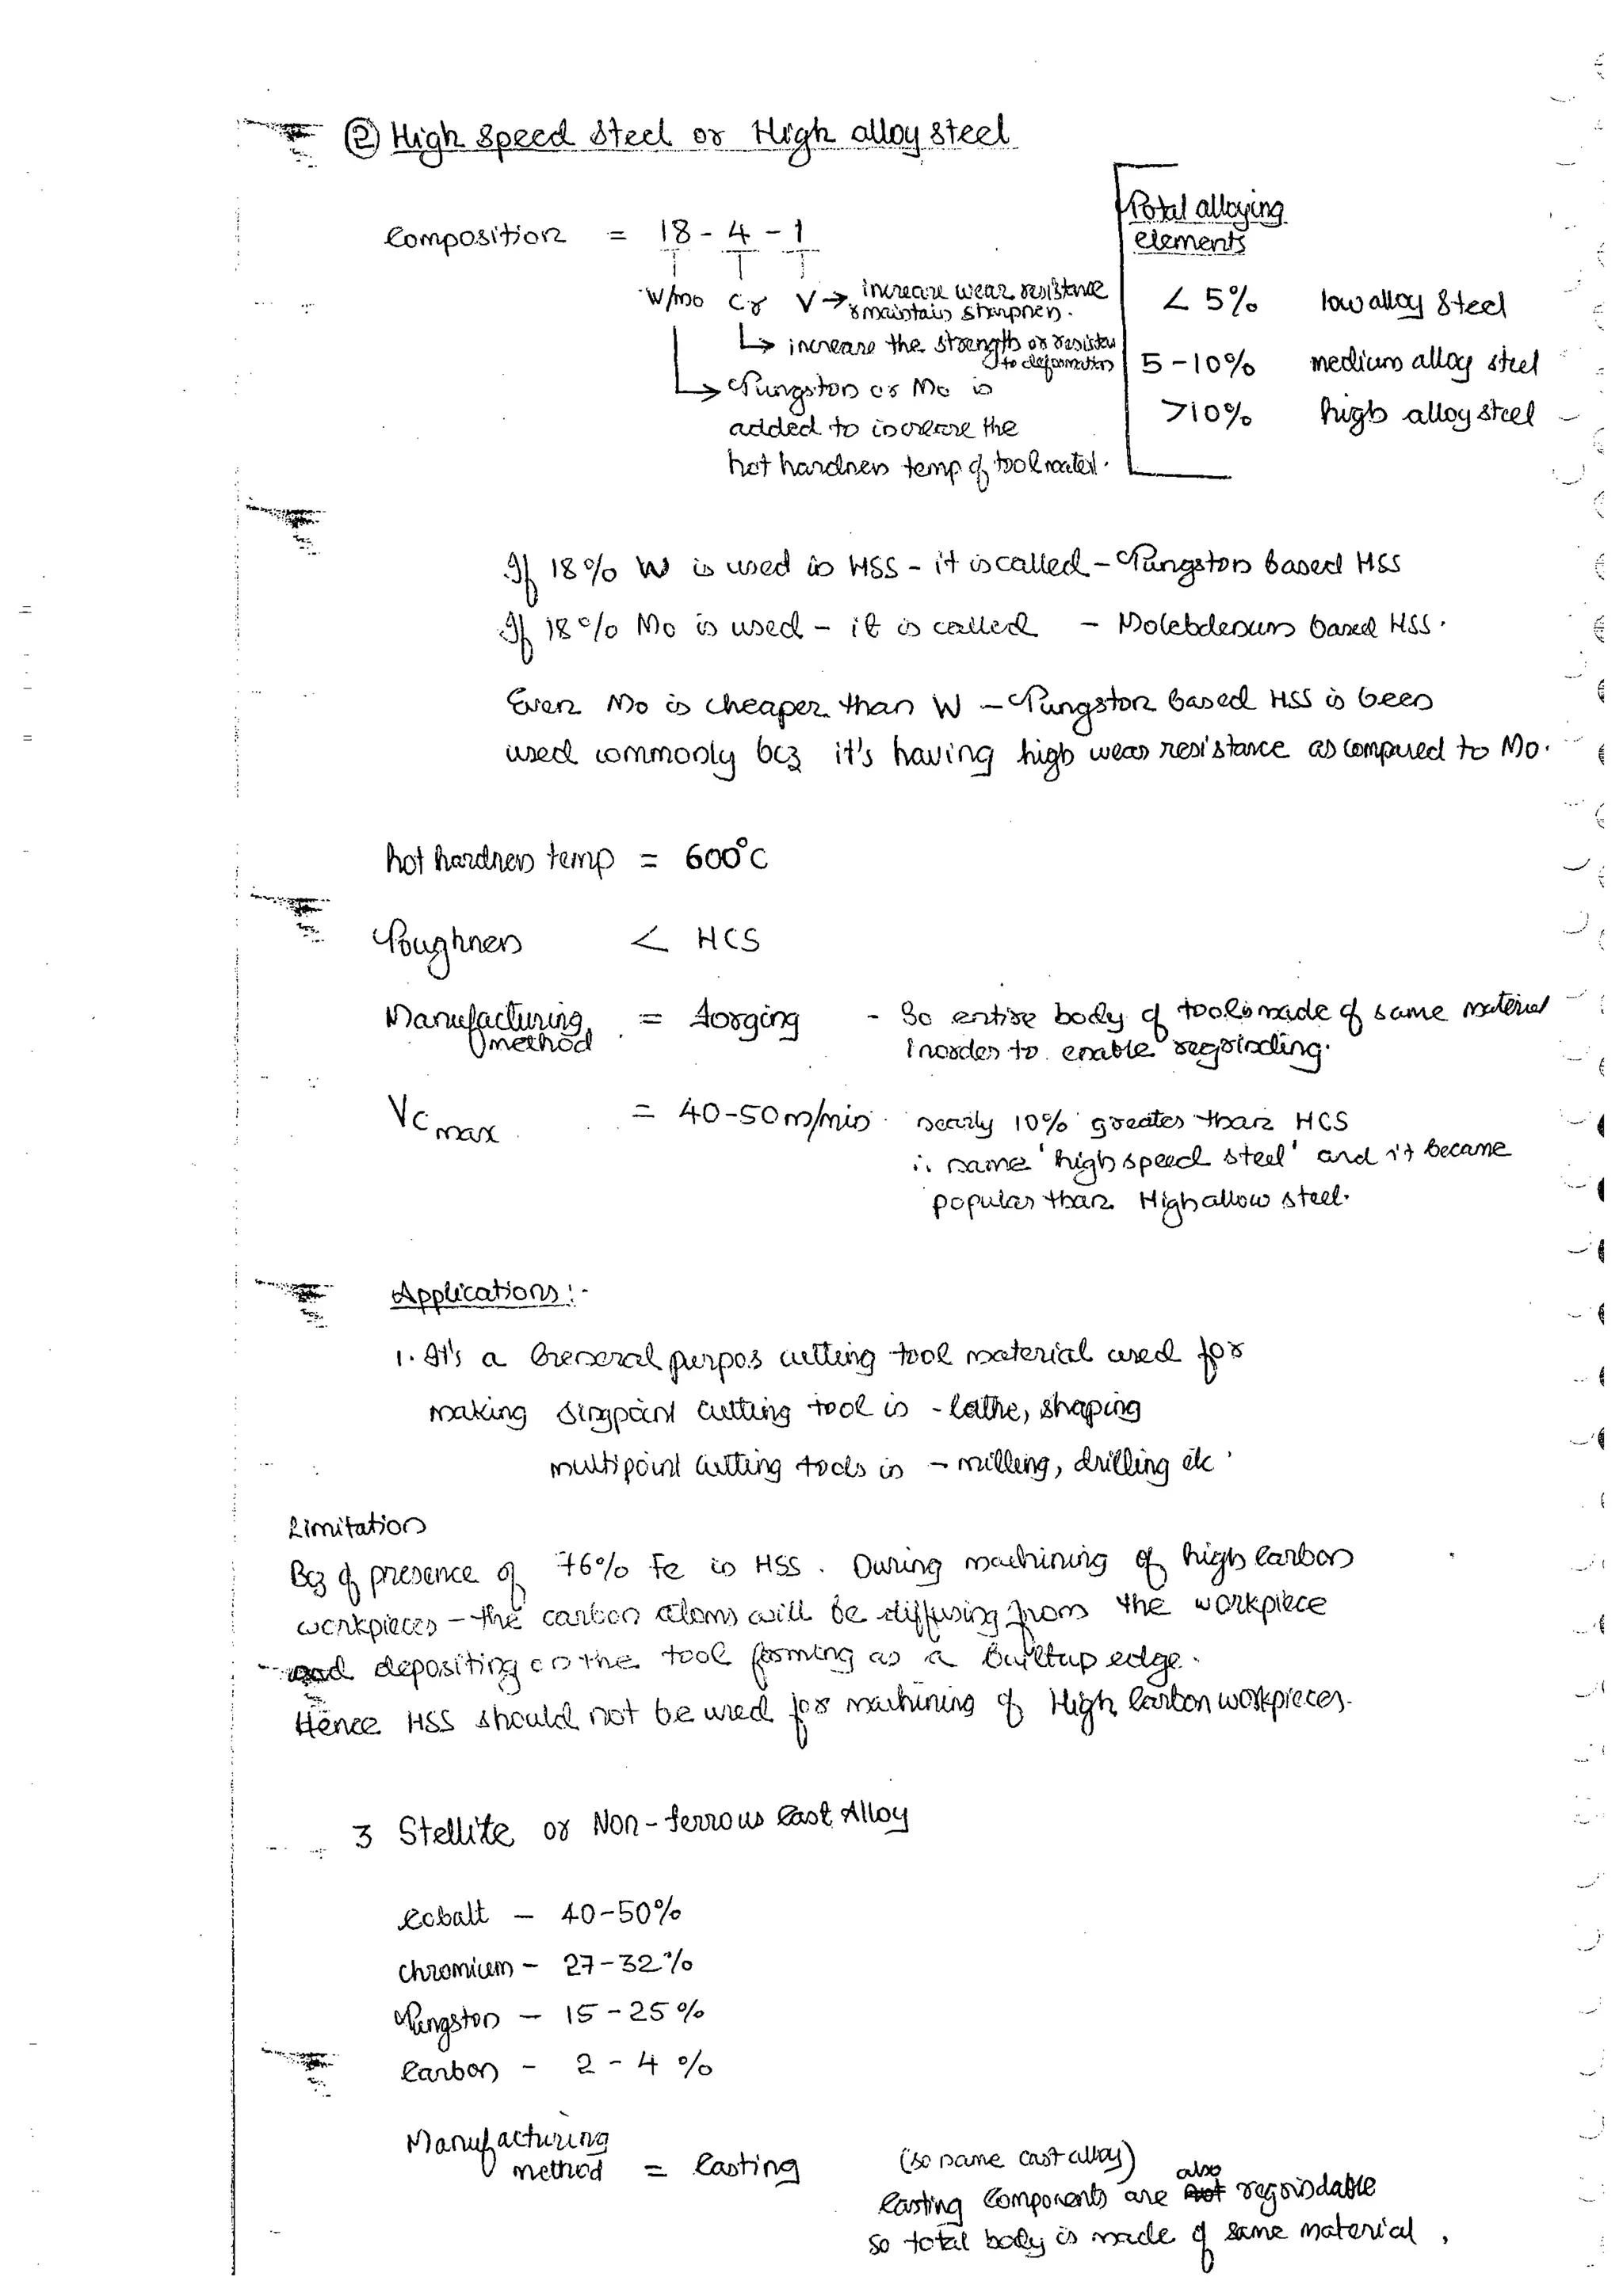 ② High Speed Steel or High alloy steel
Composition = 18 - 4 - 1
W/Mo Cr V → increase wear resistance
& maintain sharpness.
↳ increase the strength or resistan
to deformation
↳ Tungston or Mo is
added to increase the
hot hardness temp of tool mater.
Total alloying
elements
< 5% low alloy steel
5 - 10% medium alloy steel
>10% high alloy steel
If 18% W is used in HSS - it is called - Tungston based HSS
If 18% Mo is used - it is called - Molebdenum based HSS.
Even Mo is cheaper than W - Tungston based HSS is been
used commonly bcz it's having high wear resistance as compared to Mo.
hot hardness temp = 600°C
Toughness < HCS
Manufacturing
method = forging - So entire body of tool is made of same material
inorder to enable regrinding.
Vc max = 40-50 m/min. nearly 10% greater than HCS
∴ name 'high speed steel' and it became
popular than High allow steel.
Applications:-
1. It's a General purpos cutting tool material used for
making singpoint cutting tool in - lathe, shaping
multipoint cutting tools in - milling, drilling etc.
Limitation
Bcz of presence of 76% Fe in HSS. During machining of high carbon
workpieces - the carbon atoms will be diffusing from the workpiece
and depositing on the tool forming as a builtup edge.
Hence HSS should not be used for machining of High Carbon workpieces.
3 Stellite or Non-ferrous Cast Alloy
Cobalt - 40-50%
Chromium - 27-32%
Tungston - 15-25%
Carbon - 2-4%
Manufacturing
method = Casting (so name cast alloy)
Casting Components are also regrindable
so total body is made of same material,